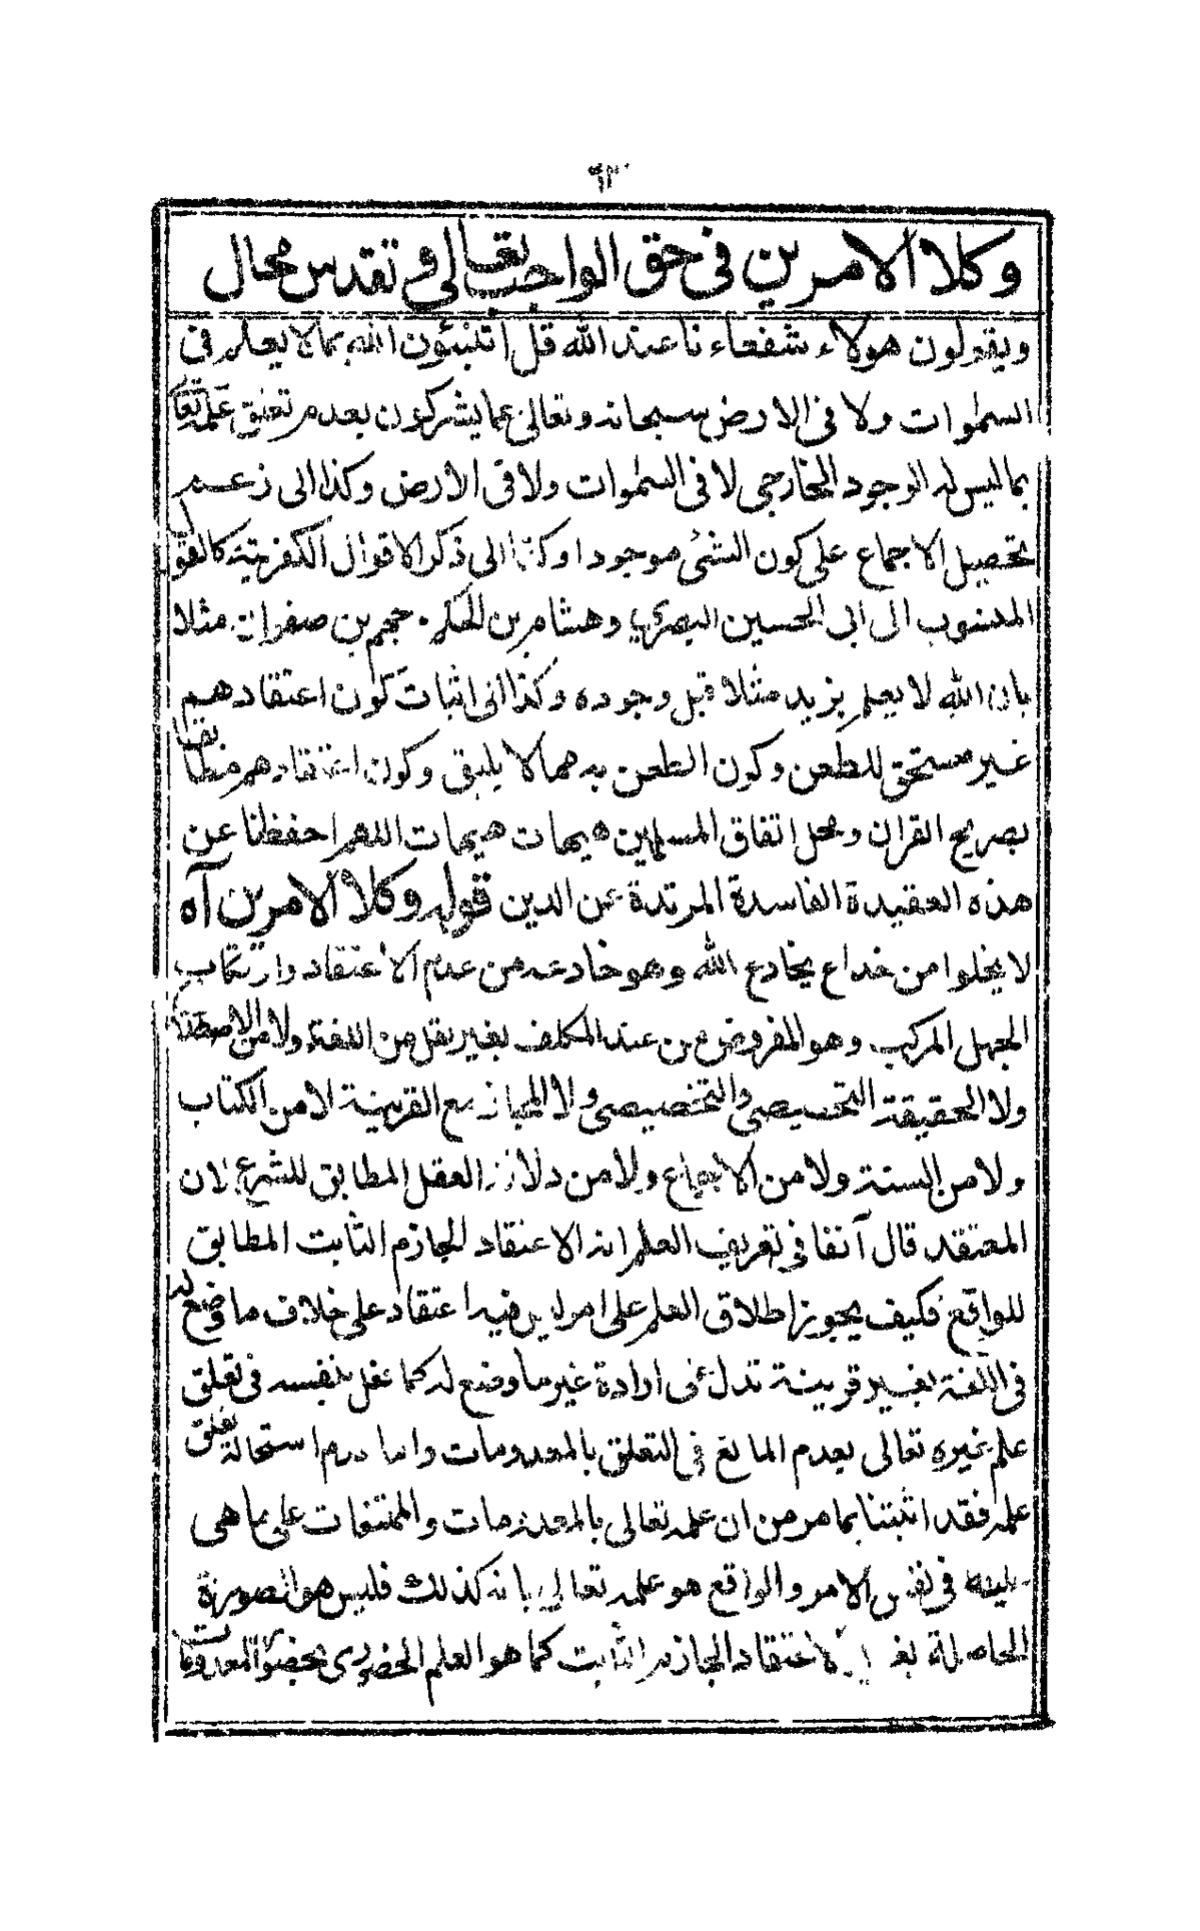 وكلا الامرين فى حق الواجب تعالى وتقدس محال
ويقولون هولاء شفعاءنا عند الله قل اتنبئون الله بمالا يعلم فى
السموات ولا فى الارض سبحانه وتعالى عما يشركون بعدم تعلق علمه تعا
بما ليس له الوجود الخارجى لا فى السموات ولا فى الارض وكذا الى زعم
تحصيل الاجماع على كون الشئ موجودا وكذا الى ذكر الاقوال الكفرية كالقول
المنسوب الى ابى الحسين البصري وهشام بن الحكم جهم بن صفوان مثلا
بان الله لا يعلم بزيد مثلا قبل وجوده وكذا الى اثبات كون اعتقادهم
غير مستحق للطعن وكون الطعن به مما لا يليق وكون اعتقادهم مطابقا
بصريح القران ومحل اتفاق المسلمين هيهات هيهات اللهم احفظنا عن
هذه العقيدة الفاسدة المرتدة عن الدين قوله وكلا الامرين آه
لا يخلوا من خداع يخادع الله وهو خادعه من عدم الاعتقاد وارتكاب
الجهل المركب وهو المفروض من عند المكلف بغير نقل من اللغة ولا من الاصطلاح
ولا الحقيقة التحسيصى والتخصيصى ولا المجاز مع القرينة لا من الكتاب
ولا من السنة ولا من الاجماع ولا من العقل المطابق للشرع لان
المعتقد قال آنفا فى تعريف العلم انه الاعتقاد الجازم الثابت المطابق
للواقع فكيف يجوز اطلاق العلم على امر ليس فيه اعتقاد على خلاف ما وضع له
فى اللغة بغير قرينة تدل على ارادة غير ما وضع له كما غفل بنفسه فى تعلق
علم غيره تعالى بعدم المانع فى التعلق بالمعدومات واما استحالة تعلق
علمه فقد اثبتنا بما مر من ان علمه تعالى بالمعدومات والممتنعات على ما هى
عليه فى نفس الامر والواقع هو علمه تعالى بانه كذلك فليس هو الصورة
الحاصلة الاعتقاد الجازم الثابت كما هو العلم الحضورى بحضور المعدومات